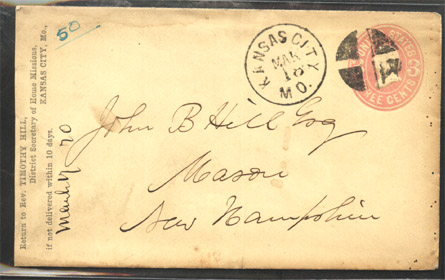 50
Return to Rev. TIMOTHY HILL,
District Secretary of Home Missions,
KANSAS CITY, Mo.,
if not delivered within 10 days.
March 70
KANSAS CITY
MAR
18
MO.
UNITED STATES
THREE CENTS
3
John B Hill Esq
Mason
New Hampshire